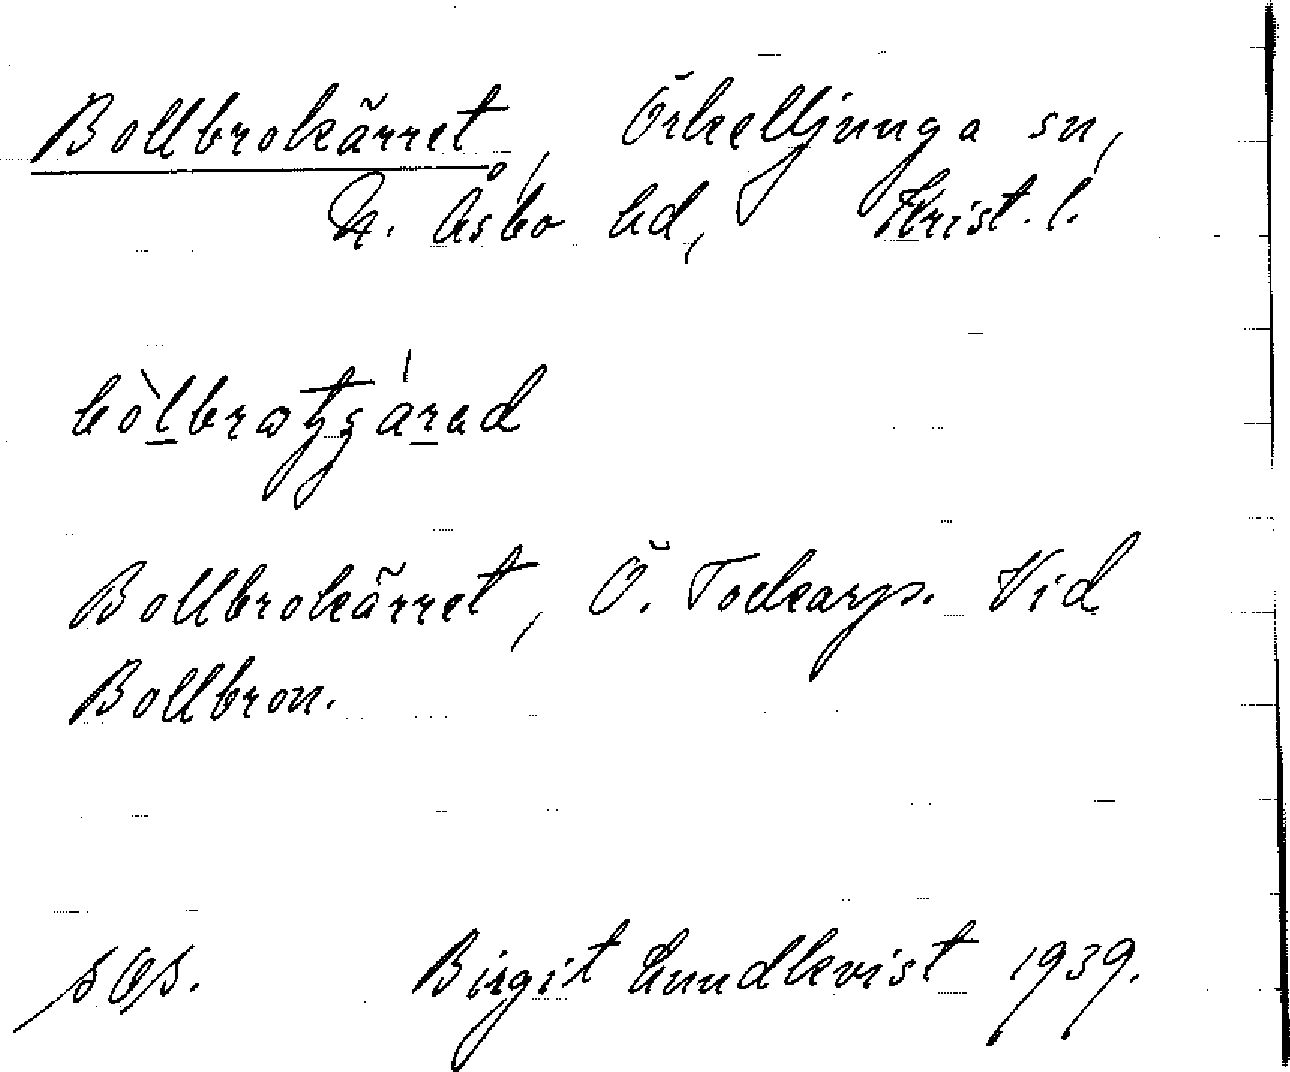 Bollbrokärret, Örkelljunga sn,
N. Åsbo hd, Krist. l.
Bollbrokärret, Ö. Tockarp. Vid
Bollbron.
Birgit Lundkvist 1939.